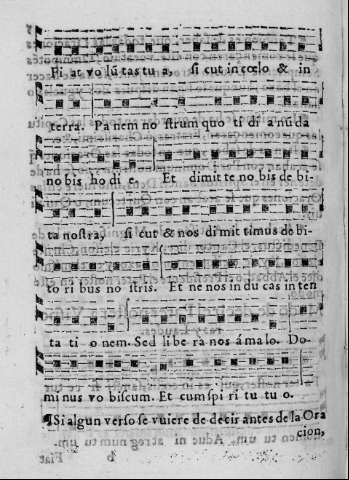 Fi at vo lũ tas tu a, si cut in cœlo & in
terra. Pa nem no strum quo ti di a nũ da
no bis ho di e. Et dimit te no bis de bi-
ta nostra, si cut & nos di mit timus de bi-
to ri bus no stris. Et ne nos in du cas in ten
ta ti o nem. Sed li be ra nos á ma lo. Do-
mi nus vo biscum. Et cum spi ri tu tu o.
¶Si algun verso se vuiere de decir antes de la Ora
cion,